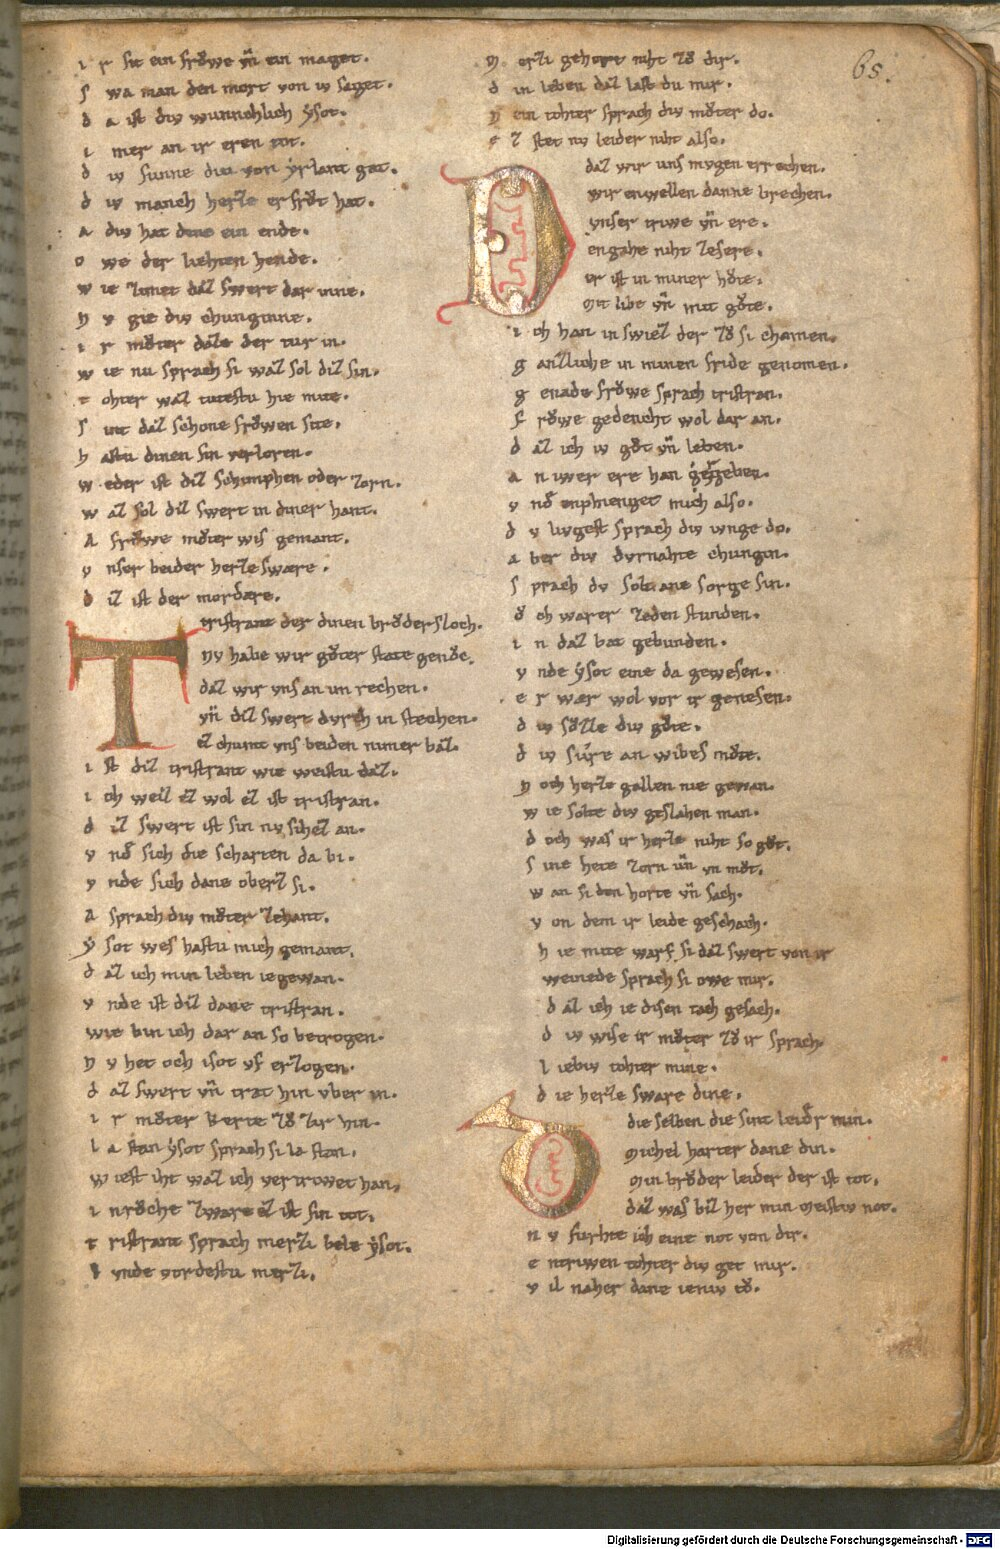 i r sit ein frŏwe vn̄ ein maget.
s wa man den mort von iv saget.
d a ist div wunnehlich ẏsot.
i mer an ir eren tot.
d iv sunne div von ẏrlant gat.
d iv manch herze erfrŏt hat.
a div hat dane ein ende.
o we der liehten hende.
w ie zimet daz swert dar inne.
n v gie div chunginne.
i r mŏter dahs der tur in.
w ie nu sprach si waz sol diz sin.
t ohter waz tutestu hie mite.
s int daz schone frŏwen site.
h astu dinen sin verloren.
w eder ist diz schimphen oder zorn.
w az sol diz swert in diner hant.
A frŏwe mŏter wis gemant.
v nser beider herze swære.
d iz ist der mordære.
Tristrant der dinen brŏder sloch.
nv habe wir gŏter state genŏc.
daz wir vns an im rechen.
vn̄ diz swert dvrch in stechen.
ez chumt vns beiden nimer baz.
i st diz tristrant wie weistu daz.
i ch weiz ez wol ez ist tristran.
d iz swert ist sin nv sihez an.
v nd sich die scharten da bi.
v nde sich dane oberz si.
A sprach div mŏter zehant.
ẏ sot wes hastu mich gemant.
d az ich min leben ie gewan.
v nde ist diz dane tristran.
wie bin ich dar an so betrogen.
n v het och isot vf erzogen.
d az swert vn̄ trat hin vber in.
i r mŏter kerte zŏ zir hin.
l a stan ẏsot sprach si la stan.
w eist iht waz ich vertrowet han.
i nrŏche zware ez ist sin tot.
t ristrant sprach merzi bele ẏsot.
i vnde vordestu merzi.
m erzi gehort niht zŏ dir.
d in leben daz last du mir.
n ein tohter sprach div mŏter do.
e z stet nv leider niht also.
Daz wir uns mvgen errechen.
wir enwellen danne brechen.
vnser triwe vn̄ ere.
engahe niht zesere.
er ist in miner hŏte.
mit libe vn̄ mit gŏte.
i ch han in swiez der zŏ si chomen.
g anzliche in minen fride genomen.
g enade frŏwe sprach tristran.
f rŏwe gedencht wol dar an.
d az ich iv gŏt vn̄ leben.
a n iwer ere han gegeben.
v nd enphienget mich also.
d v livgest sprach div ivnge do.
a ber div dvrnahte chungin.
s prach dv solt ane sorge sin.
ŏ ch warer zeden stunden.
i n daz bat gebunden.
v nde ẏsot eine da gewesen.
e r war wol vor ir genesen.
d iv sŏzze div gŏte.
d iv sure an wibes mŏte.
n och herze gallen nie gewan.
w ie solte div geslahen man.
d och was ir herze niht so gŏt.
s ine hete zorn vn̄ vn mŏt.
w an si den horte vn̄ sach.
v on dem ir leide geschach.
h ie mite warf si daz swert von ir
weinede sprach si owe mir.
d az ich ie disen tach gesach.
d iv wise ir mŏter zŏ ir sprach.
l iebiv tohter mine.
d ie herze sware dine.
die selben die sint leider min.
michel harter dane din.
min brŏder leider der ist tot.
daz was biz her min meistiv not.
n v furhte ich eine not von dir.
e ntriwen tohter div get mir.
v il naher dane ieniv tŏ.
65.
Digitalisierung gefördert durch die Deutsche Forschungsgemeinschaft - DFG